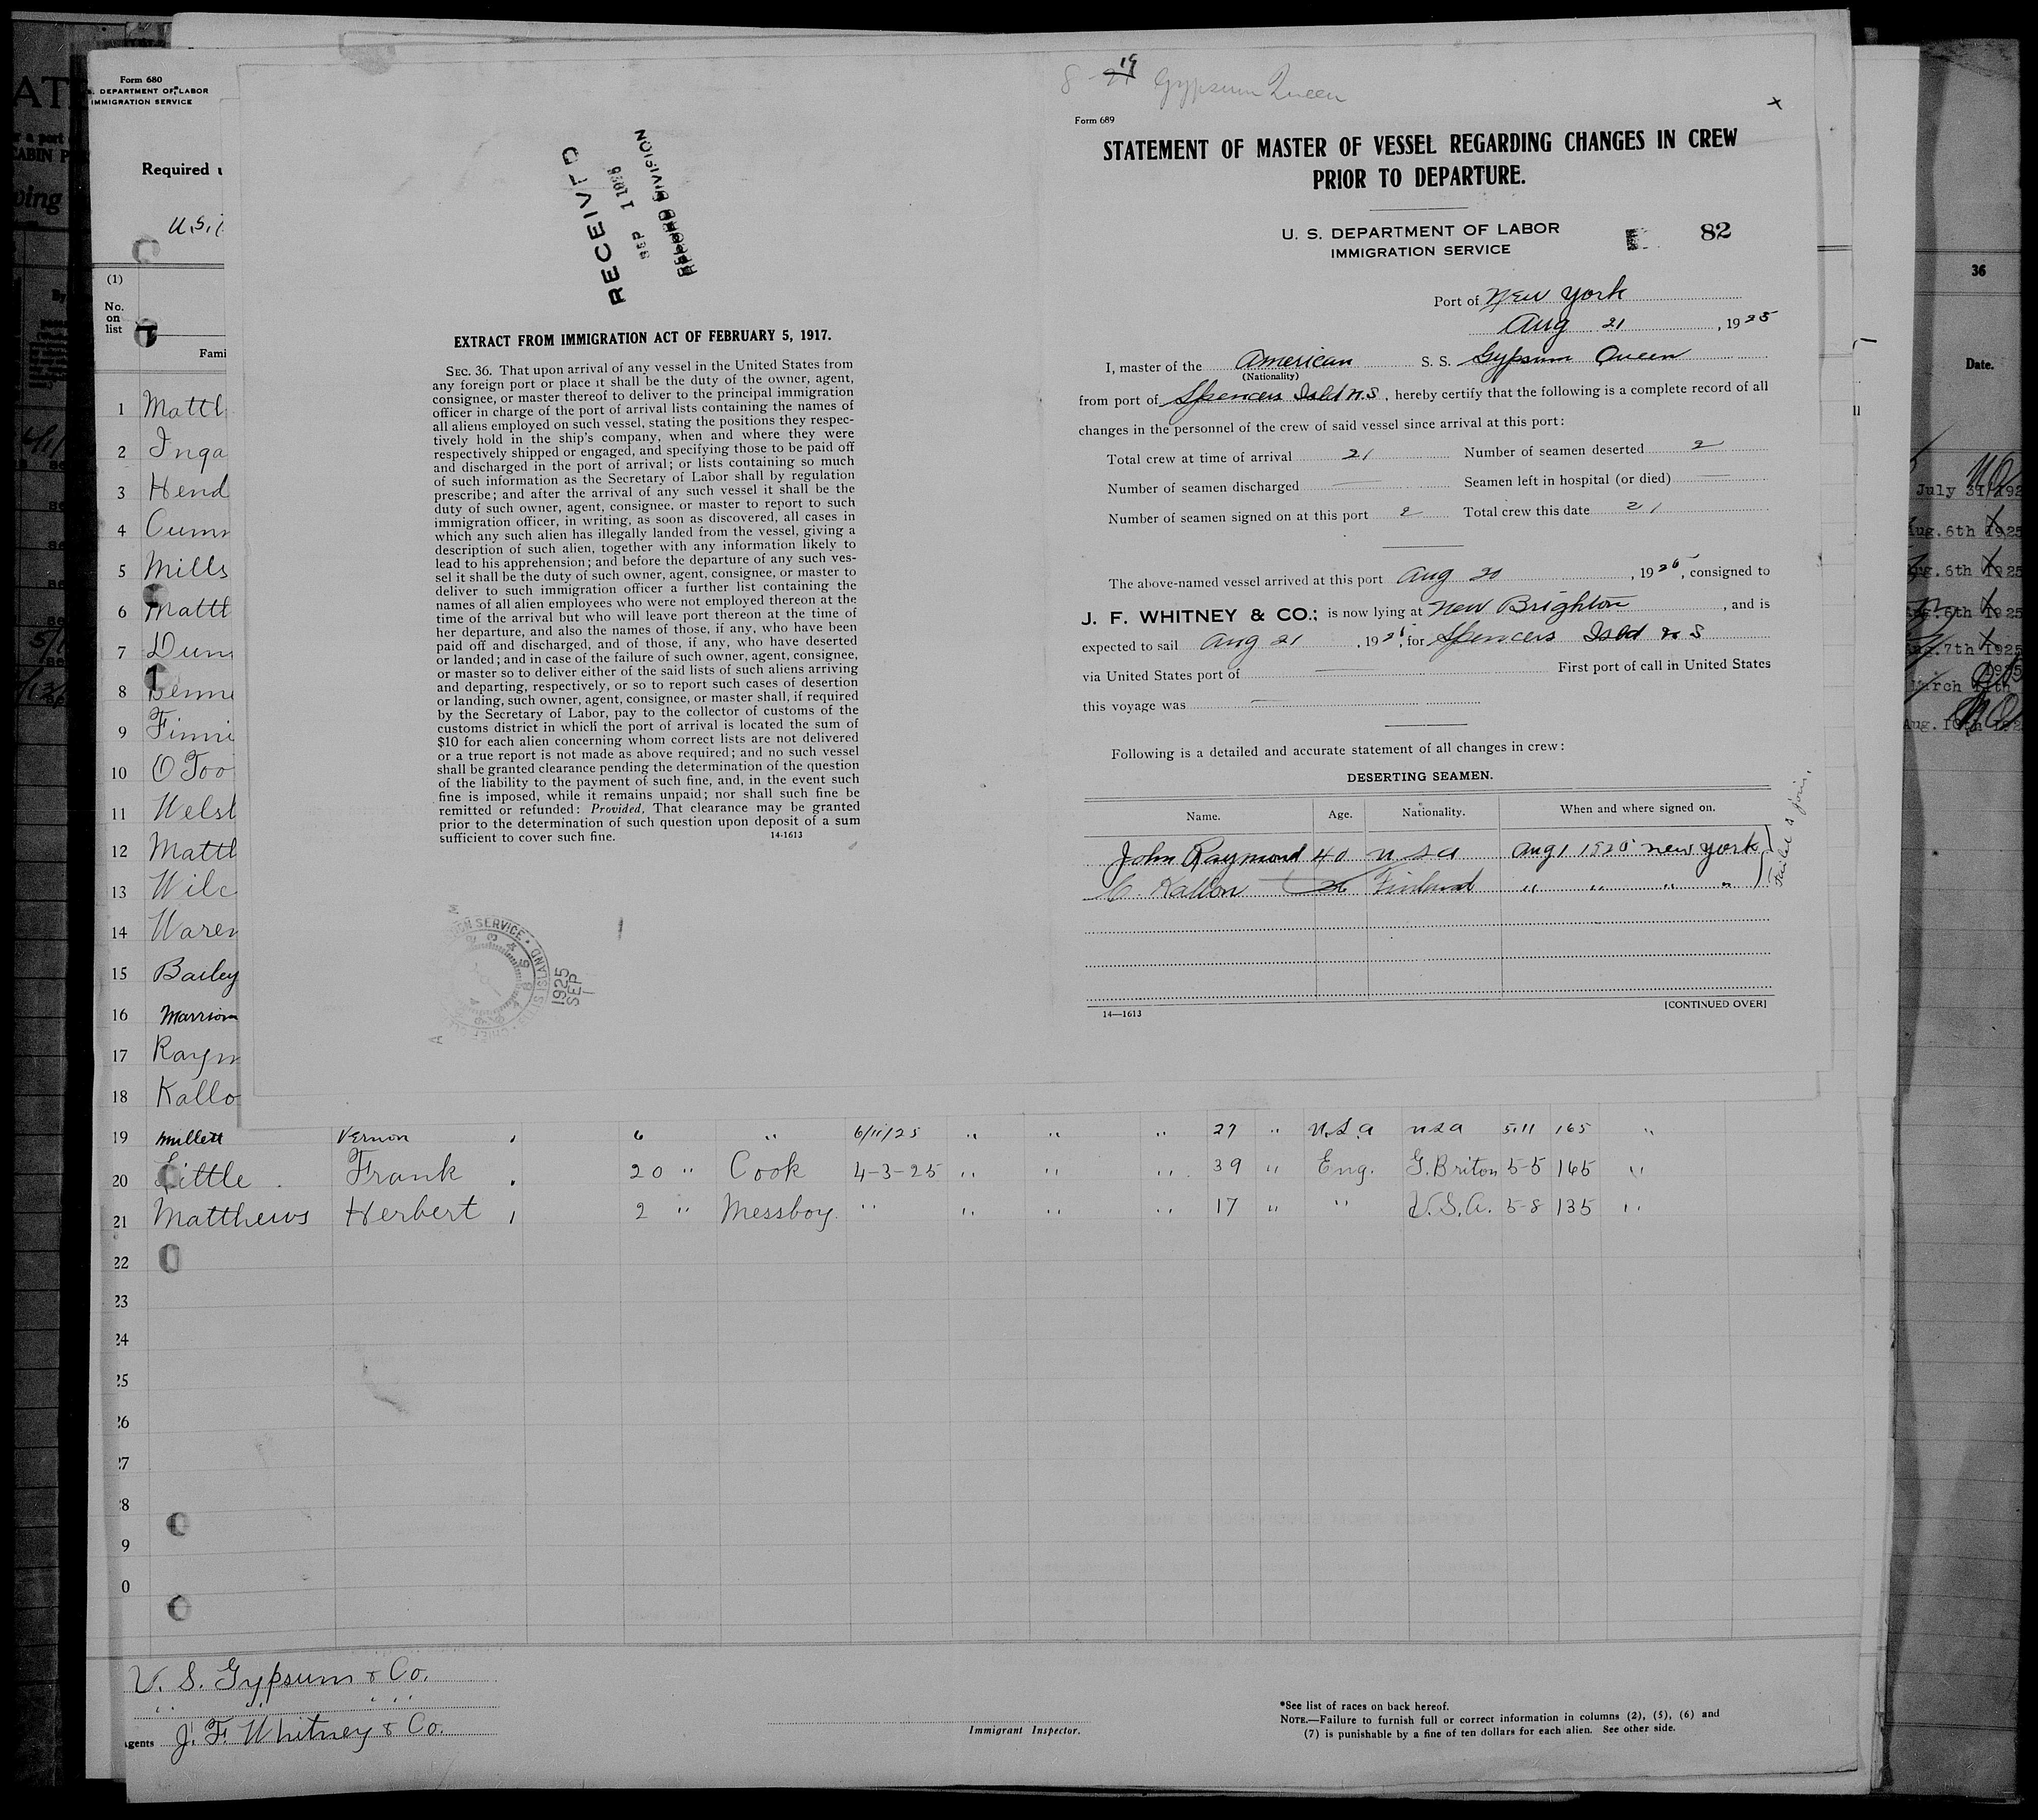 8 19 Gypsum Queen
Form 689
STATEMENT OF MASTER OF VESSEL REGARDING CHANGES IN CREW
PRIOR TO DEPARTURE.
U. S. DEPARTMENT OF LABOR
IMMIGRATION SERVICE
82
Port of New York
Aug 21, 1925
I, master of the American S. S. Gypsum Queen
(Nationality)
from port of Spencers Isld N.S, hereby certify that the following is a complete record of all
changes in the personnel of the crew of said vessel since arrival at this port:
Total crew at time of arrival 21 Number of seamen deserted 2
Number of seamen discharged — Seamen left in hospital (or died) —
Number of seamen signed on at this port 2 Total crew this date 21
The above-named vessel arrived at this port Aug 20, 1925, consigned to
J. F. WHITNEY & CO.; is now lying at New Brighton, and is
expected to sail Aug 21, 192, for Spencers Isld N S
via United States port of — First port of call in United States
this voyage was —
Following is a detailed and accurate statement of all changes in crew:
DESERTING SEAMEN.
Name. Age. Nationality. When and where signed on.
John Raymond 40 U S A Aug 1 1925 New York
C. Kallon 26 Finland " " " "
Failed to join.
[CONTINUED OVER]
14—1613
RECEIVED
SEP 1 1925
RECORD DIVISION
EXTRACT FROM IMMIGRATION ACT OF FEBRUARY 5, 1917.
SEC. 36. That upon arrival of any vessel in the United States from
any foreign port or place it shall be the duty of the owner, agent,
consignee, or master thereof to deliver to the principal immigration
officer in charge of the port of arrival lists containing the names of
all aliens employed on such vessel, stating the positions they respec-
tively hold in the ship's company, when and where they were
respectively shipped or engaged, and specifying those to be paid off
and discharged in the port of arrival; or lists containing so much
of such information as the Secretary of Labor shall by regulation
prescribe; and after the arrival of any such vessel it shall be the
duty of such owner, agent, consignee, or master to report to such
immigration officer, in writing, as soon as discovered, all cases in
which any such alien has illegally landed from the vessel, giving a
description of such alien, together with any information likely to
lead to his apprehension; and before the departure of any such ves-
sel it shall be the duty of such owner, agent, consignee, or master to
deliver to such immigration officer a further list containing the
names of all alien employees who were not employed thereon at the
time of the arrival but who will leave port thereon at the time of
her departure, and also the names of those, if any, who have been
paid off and discharged, and of those, if any, who have deserted
or landed; and in case of the failure of such owner, agent, consignee,
or master so to deliver either of the said lists of such aliens arriving
and departing, respectively, or so to report such cases of desertion
or landing, such owner, agent, consignee, or master shall, if required
by the Secretary of Labor, pay to the collector of customs of the
customs district in which the port of arrival is located the sum of
$10 for each alien concerning whom correct lists are not delivered
or a true report is not made as above required; and no such vessel
shall be granted clearance pending the determination of the question
of the liability to the payment of such fine, and, in the event such
fine is imposed, while it remains unpaid; nor shall such fine be
remitted or refunded: Provided, That clearance may be granted
prior to the determination of such question upon deposit of a sum
sufficient to cover such fine. 14-1613
1925
SEP
1
Form 680
DEPARTMENT OF LABOR
IMMIGRATION SERVICE
Required
U.S.
(1)
No.
on
list
Fami
1 Matth
2 Inga
3 Hend
4 Cumm
5 Mills
6 Matth
7 Dunn
8 Benne
9 Finni
10 O Too
11 Welsh
12 Matth
13 Wilc
14 Waren
15 Bailey
16 Marriom
17 Raym
18 Kallo
19 Millett Vernon 6 " 6/11/25 " " " 27 " U.S.A U S A 5.11 165 "
20 Little Frank 20 " Cook 4-3-25 " " " 39 " Eng. G. Briton 5-5 165 "
21 Matthews Herbert 2 " Messboy " " " " 17 " " U.S.A. 5-8 135 "
22
23
24
25
26
27
28
9
0
U. S. Gypsum & Co.
" " " "
Agents J. F. Whitney & Co.
Immigrant Inspector.
*See list of races on back hereof.
NOTE.—Failure to furnish full or correct information in columns (2), (5), (6) and
(7) is punishable by a fine of ten dollars for each alien. See other side.
36
Date.
July 31/192
Aug. 6th 1925
Aug. 6th 1925
Aug. 6th 1925
Aug. 7th 1925
March 11th 1925
Aug. 10th 192